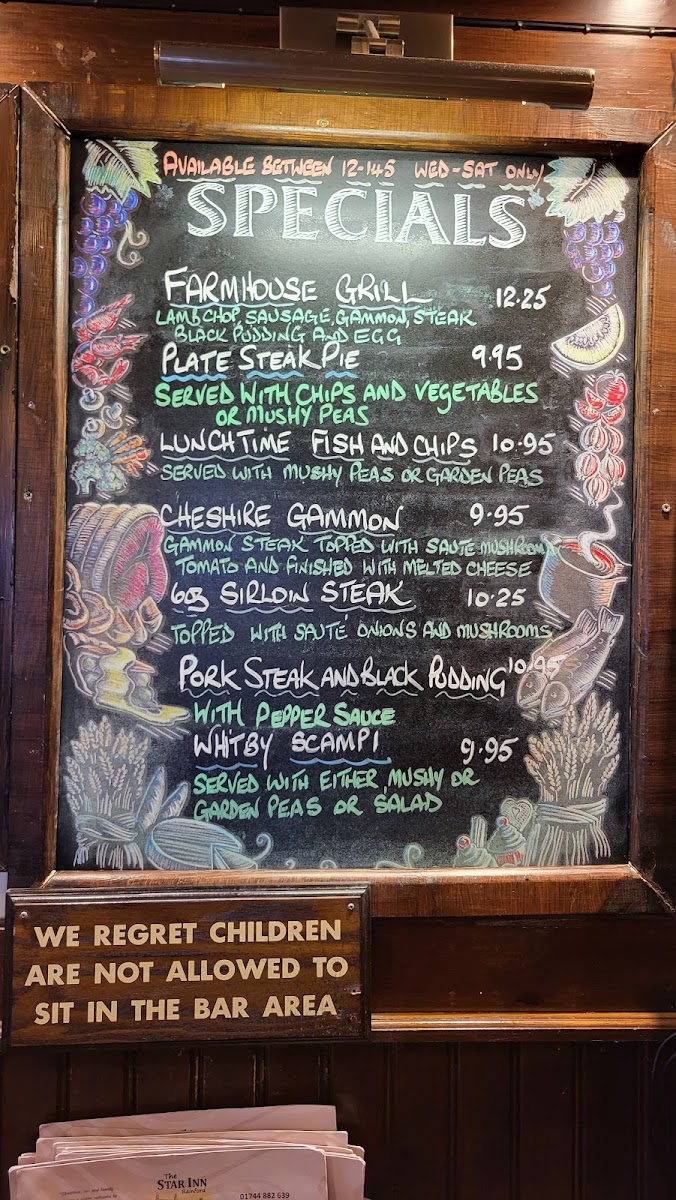 AVAILABLE BETWEEN 12-145 WED-SAT ONLY
SPECIALS
FARMHOUSE GRILL 12.25
LAMB CHOP, SAUSAGE, GAMMON, STEAK
BLACK PUDDING AND EGG
PLATE STEAK PIE 9.95
SERVED WITH CHIPS AND VEGETABLES
OR MUSHY PEAS
LUNCHTIME FISH AND CHIPS 10.95
SERVED WITH MUSHY PEAS OR GARDEN PEAS
CHESHIRE GAMMON 9.95
GAMMON STEAK TOPPED WITH SAUTE MUSHROOM
TOMATO AND FINISHED WITH MELTED CHEESE
6oz SIRLOIN STEAK 10.25
TOPPED WITH SAUTÉ ONIONS AND MUSHROOMS
PORK STEAK AND BLACK PUDDING 10.95
WITH PEPPER SAUCE
WHITBY SCAMPI 9.95
SERVED WITH EITHER MUSHY OR
GARDEN PEAS OR SALAD
WE REGRET CHILDREN
ARE NOT ALLOWED TO
SIT IN THE BAR AREA
The
STAR INN
Rainford
01744 882 639